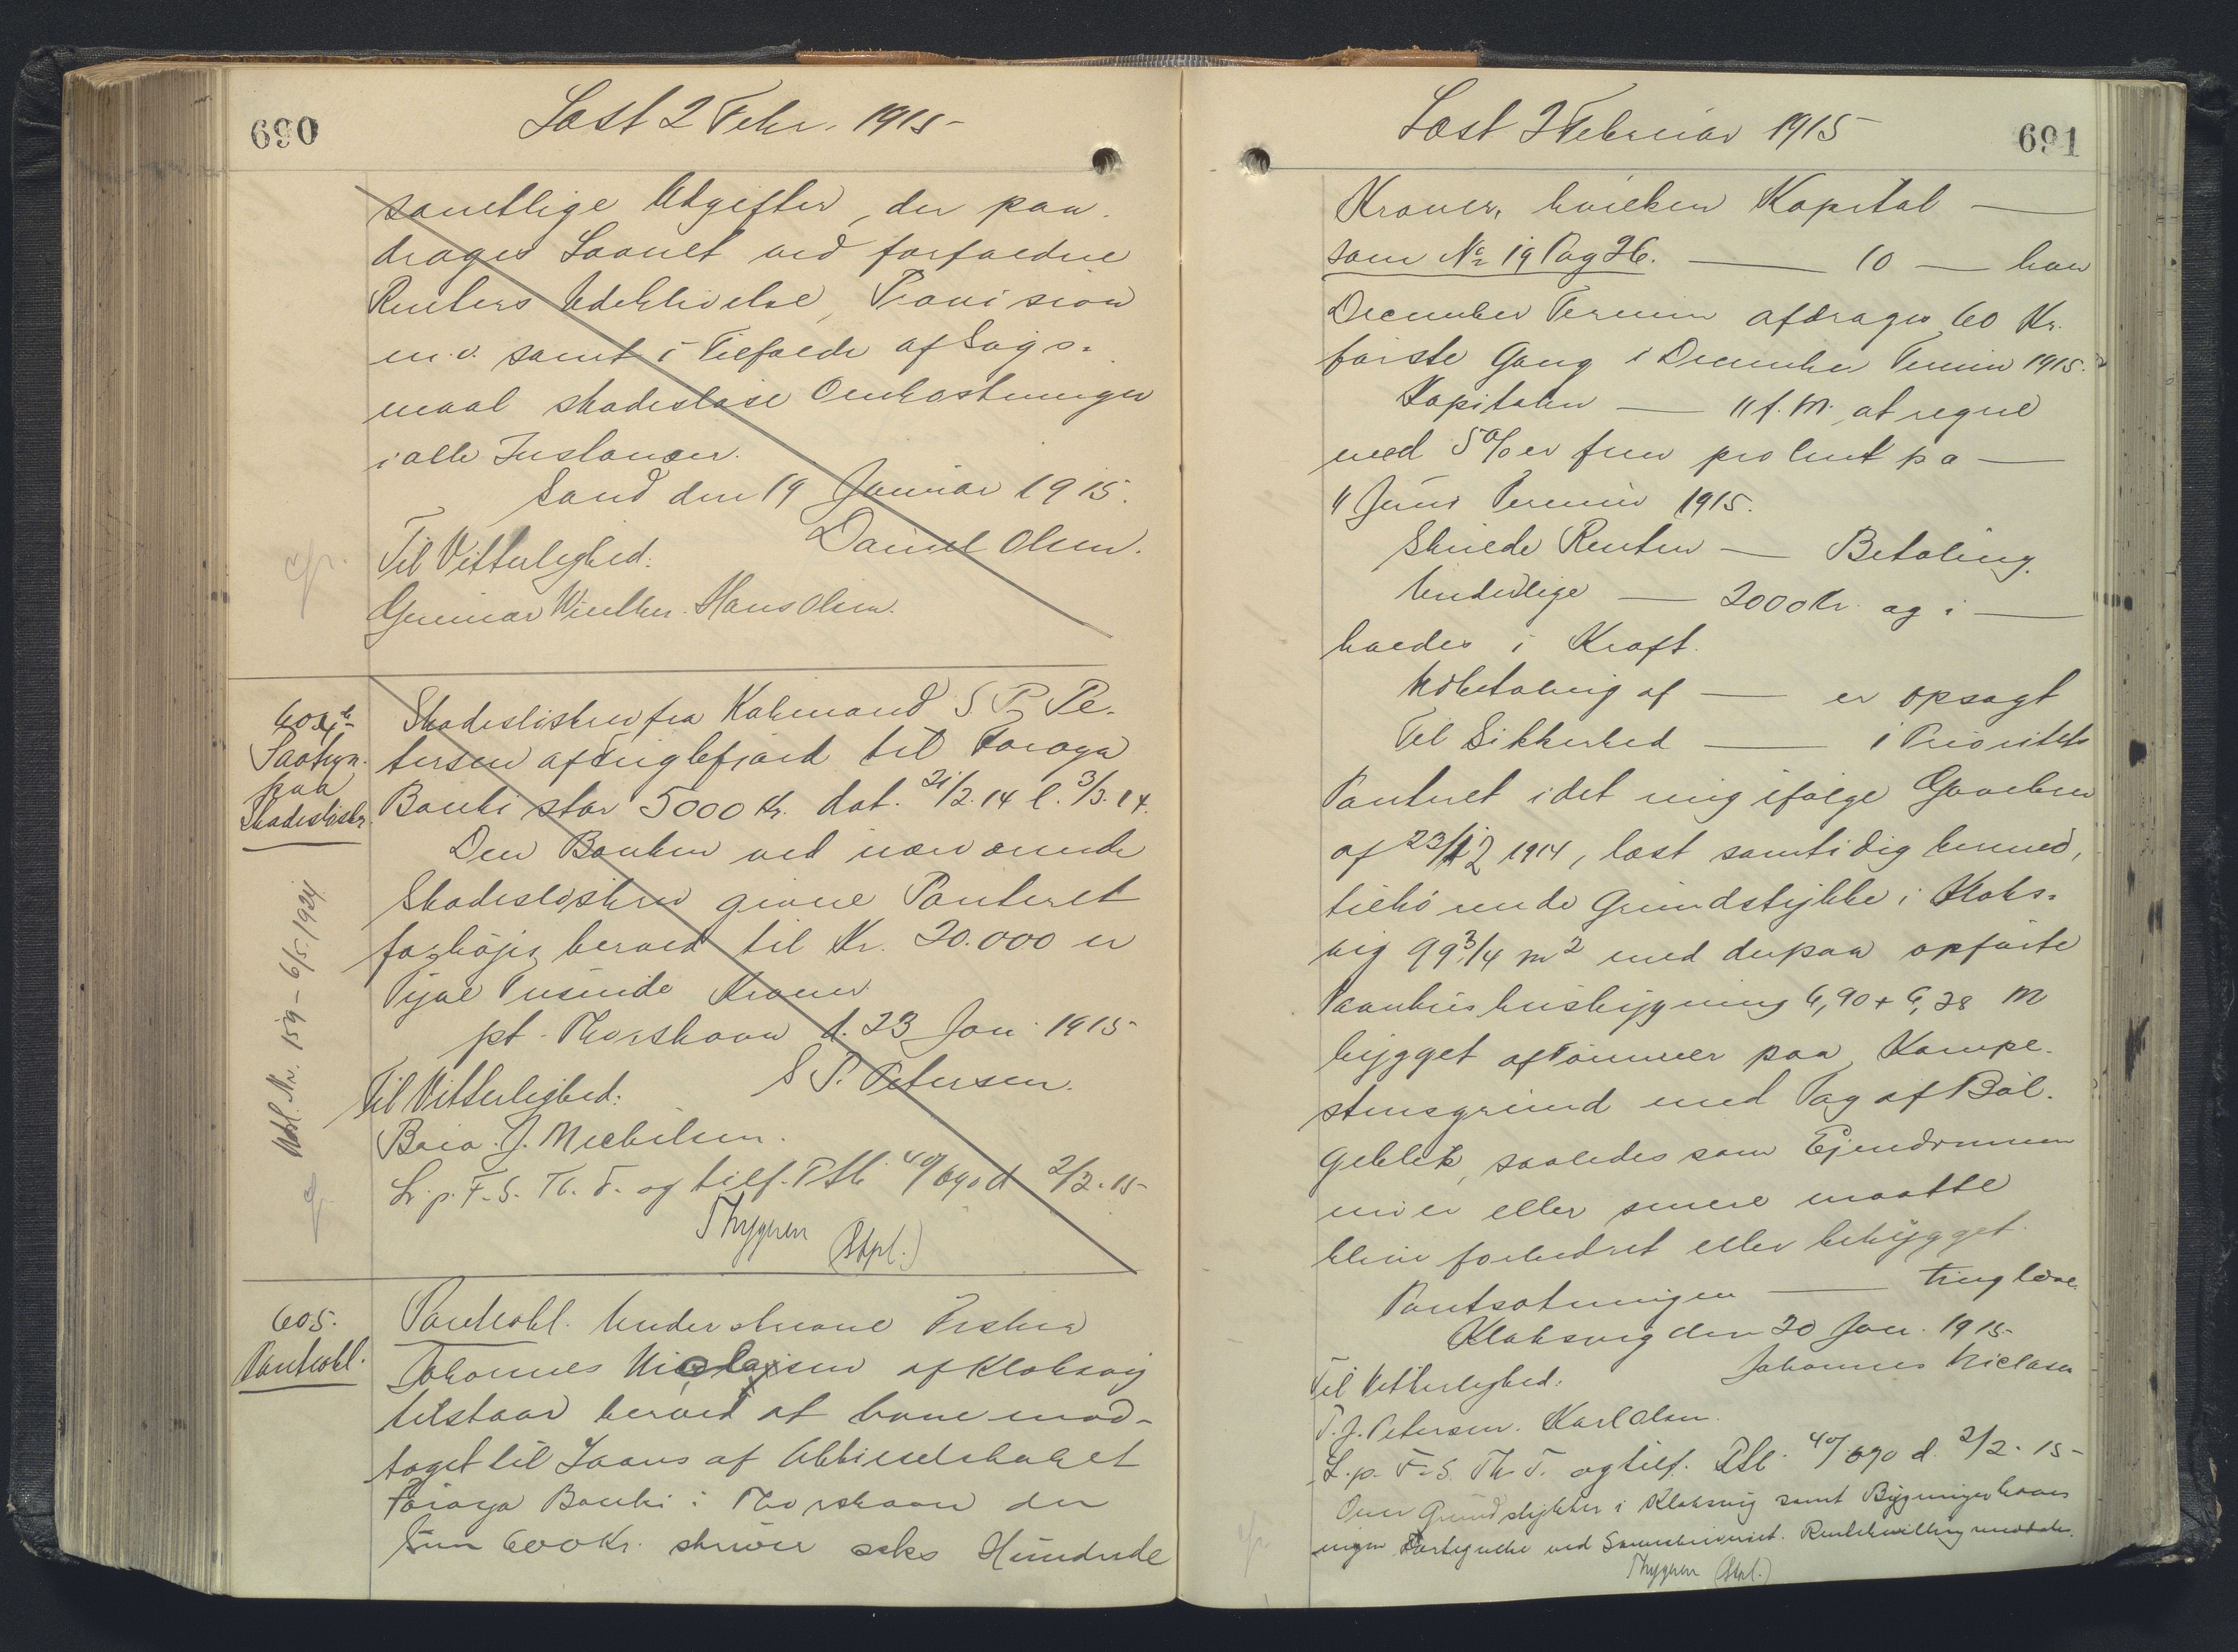 690
Læst 2 Febr. 1915
samtlige Udgifter, der paa-
drages Laanet ved forfaldne
Renters Udeblivelse, Provision
m.v. samt i Tilfælde af Søgs-
maal skadesløse Omkostninger
i alle Instanser.
Sand den 19 Januar 1915.
Daniel Olsen.
Til Vitterlighed:
Gunnar Winther. Hans Olsen.
604
Paategn.
paa
Skadesløsbr.
Skadesløsbrev fra Købmand S. P. Pe-
tersen af Fuglefjord til Føroya
Banki stor 5000 Kr. dat. 21/2. 14 l. 3/3. 14.
Den Banken ved nærværende
Skadesløsbrev givne Panteret
forhøjes herved til Kr. 20.000 er
Tyve Tusinde Kroner
pt. Thorshavn d. 23 Jan 1915
S P. Petersen.
Til Vitterlighed:
J. Michelsen.
L. p. F. S. Th. T. og tilf. Ptb. 40/690 d 2/2. 15
Thygesen (Stpl.)
Udsl. Nr. 159 - 6/5. 1924
605.
Panteobl.
Panteobl. Underskrevne Fisker
Johannes Niclasen af Klaksvig
tilstaar herved at have mod-
taget til Laans af Aktieselskabet
Føroya Banki i Thorshavn den
Sum 600 Kr. skriver seks Hundrede
Læst 2 Februar 1915
691
Kroner, hvilken Kapital —
som No 19 Pag 26. — 10 — hver
December Termin afdrages 60 Kr.
første Gang i December Termin 1915.
Kapitalen — 11 f. M. at regne
med 5% er fem procent p a —
11 Juni Termin 1915.
Skulde Renten — Betaling.
Underlige — 2000 Kr. og i —
holdes i Kraft.
Udbetaling af — er opsagt
Til Sikkerhed — i Prioritets
Panteret i det mig ifølge Gavebrev
af 23/12 1914, læst samtidig hermed,
tilhørende Grundstykke i Klaks-
vig 99 3/4 m2 med derpaa opførte
Vaanhushusbygning 6,90 x 6,28 M
bygget af Tømmer paa Kampe-
stensgrund med Tag af Bøl-
geblik, saaledes som Ejendommen
nu er eller senere maatte
blive forbedret eller bebygget.
Pantsætningen — tinglæse.
Klaksvig den 20 Jan. 1915
Johannes Niclasen
Til Vitterlighed:
P. J. Petersen. Karl Olsen.
L. p. F. S. Th T. og tilf. Ptb. 40/690 d. 2/2. 15
Over Grundstykker i Klaksvig samt Bygninger haves
ingen Fortegnelse ved Sorenskriveriet.
Thygesen (Stpl.)